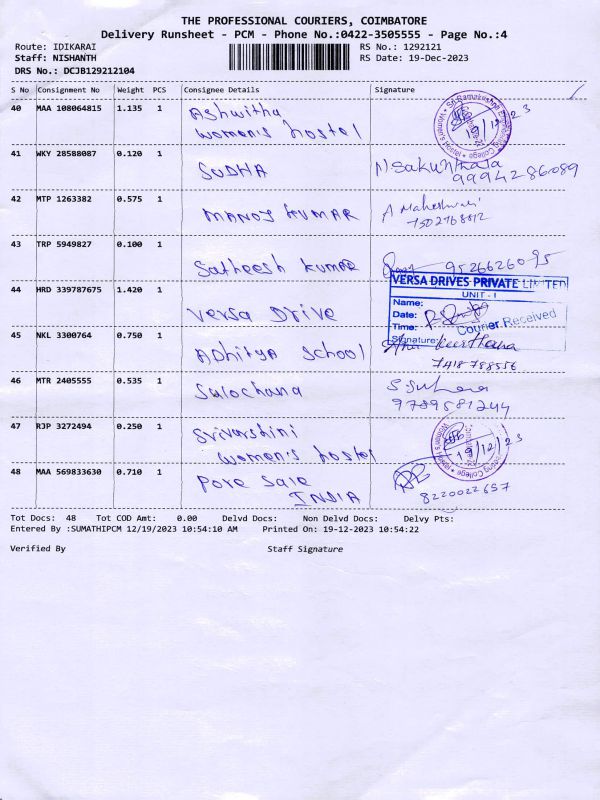 THE PROFESSIONAL COURIERS, COIMBATORE
Delivery Runsheet - PCM - Phone No.:0422-3505555 - Page No.:4
Route: IDIKARAI RS No.: 1292121
Staff: NISHANTH RS Date: 19-Dec-2023
DRS No.: DCJB129212104
S No Consignment No Weight PCS Consignee Details Signature
40 MAA 108064815 1.135 1 Ashwitha
women's hostel 19/12/23
41 WKY 28588087 0.120 1 SUDHA N. Sakunthala
9994286089
42 MTP 1263382 0.575 1 MANOJ KUMAR A Maheshwari
7502768812
43 TRP 5949827 0.100 1 Satheesh kumar 9526626095
44 HRD 339787675 1.420 1 Versa Drive
VERSA DRIVES PRIVATE LIMITED
UNIT - I
Name:
Date:
Time: Courier Received
Signature:
45 NKL 3300764 0.750 1 ADhitya School Keerthana
7418788556
46 MTR 2405555 0.535 1 Sulochana
9789581244
47 RJP 3272494 0.250 1 Srivarshini
women's hostel 19/12/23
48 MAA 569833630 0.710 1 Pore Sale
INDIA 8220022657
Tot Docs: 48 Tot COD Amt: 0.00 Delvd Docs: Non Delvd Docs: Delvy Pts:
Entered By :SUMATHIPCM 12/19/2023 10:54:10 AM Printed On: 19-12-2023 10:54:22
Verified By Staff Signature